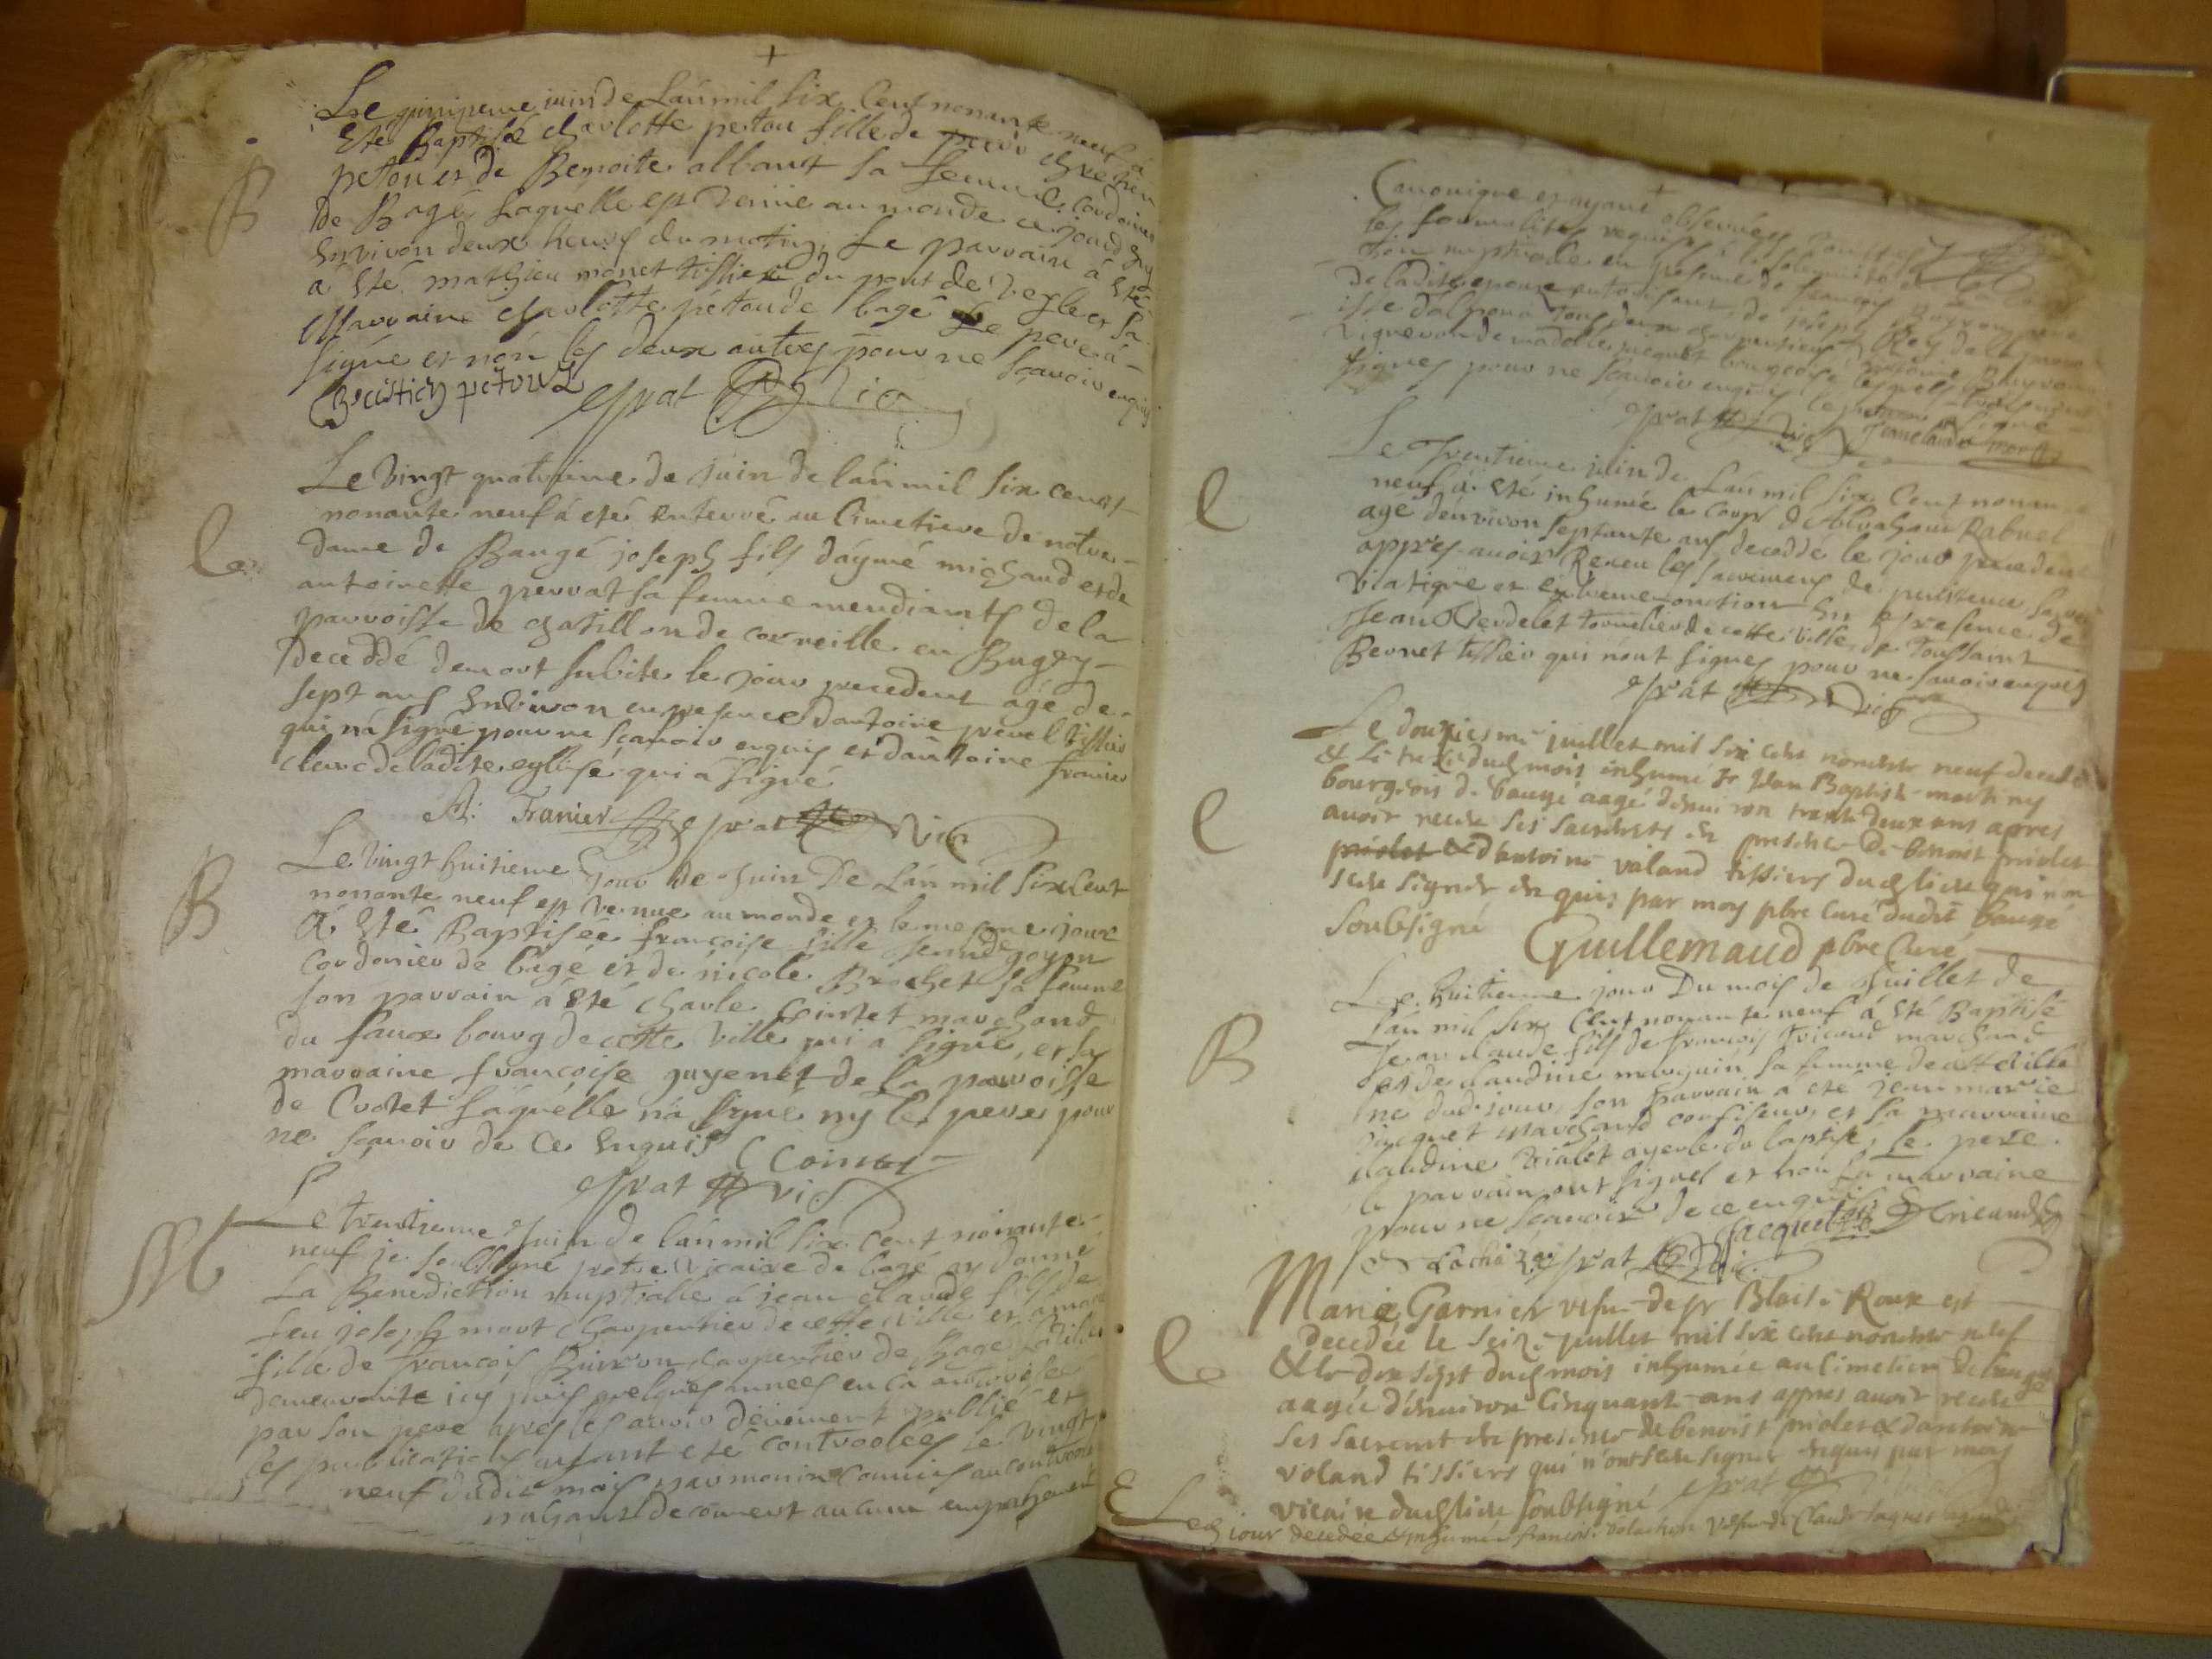 Le quinzieme juin de Lán mil Six Cent nonante neuf á
Eté Baptisée charlotte petou fille de chrestien
petou et de Benoite albant sa femme Cordonnier
B
de Bagé, Laquelle est venüe au monde ce jourdhuy
Environ deux heures du matin, Le parrain á esté
á Eté mathieu monet tissier du pont de Vesle et sa
Marraine charlotte petou de bagé Le pere á
signé et nón les deux autres pour ne sçavoir enquis
petouz Esprat Vic
Le vingt quatrieme de juin de lán mil six cent
nonante neuf á eté enterré au Cimetiere de notre
C
dame de Baugé joseph fils dáymé michaud et de
antoinette perrat sa femme mendiants de la
parroisse de chatillon de corneille en Bugey
Deceddé de mort subite le jour precedent agé de
sept ans Environ en presence dantoine prevel tissier
qui ná signé pour ne sçavoir enquis et dantoine franier
clerc de ladite eglise qui á signé
A: Franier Esprat Vic
Le vingt huitieme jour de Juin De Lán mil Six Cent
B
nonante neuf est venue au monde et le mesme jour
á Eté Baptisée françoise fille goyon
Cordonier de bagé et de nicole Brochet sa femme
son parrain á été charle Cointet marchand
du faux bourg de cette ville qui a signé, et sa
marraine françoise guyenet de la parroisse
de Crotet Láquélle ná signé ny le pere pour
ne sçavoir de Ce Enquis C Cointet
Esprat vic
M
Le trentieme Juin de lán mil six Cent nonante
neuf je soubsigné pretre vicaire de bagé ay donné
La Benediction nuptialle á jean claude fils de
feu joseph mort charpentier de cette ville et a
fille de françois Buiron charpentier de Bage
demeurante icy puis quelques années en ca authorisée
par son pere apres les avoir deüement publié et
les publications ayant eté controolées le vingt
neuf dudit mois par monin commis au controole
n'ayant decouvert aucun empechement
Canonique et ayant observées toutes
les formalités requises á la solemnité
tion nuptialle en presence de françois Buyron pere
de ladite epouse de joseph Rey
Vigneron de jacquet bourgeoise lesquels
signés pour ne sçavoir enquis signé
Esprat Vic Jeanclaude mort
Le Trentieme juin de Lán mil Six Cent nonante
C
neuf á Eté inhumé le Corps de Abraham Rabuel
agé dénviron septante ans deceddé le jour precedent
apprés avoir Receu les sacremens de penitence
viatique et extreme onction En presence de
Jean Verdelet tonnelier de cette ville, de Toussaint
Bernet tissier qui nónt signes pour ne sçavoir enquis
Esprat Vic
Le douziesme juillet mil six cent nonante neuf decedé
& Le treze dud mois inhumé Sr Jean Baptiste martiny
C
bourgeois de baugé aagé denviron trante deux ans apres
avoir receu ses sacrements en presence de benoist priolet
priolet & dantoine valand tissiers dud lieu qui n'on
sceu signer en quis par moy pbre Curé dudit baugé
soubsigné
Guillemaud pbre Curé
Le huitieme jour Du mois de Juillet de
Lán mil Six Cent nonante neuf á Eté Baptisé
B
Jean claude fils de françois Tricaud marchand
et de claudine marguin sa femme de cette ville
ne dud. jour, son parrain a eté jean marie
jacquet marchand confiseur, et sa marraine
claudine vialet ayeule du baptisé; le pere
le parrain ont signés et non la marraine
pour ne sçavoir de ce enquis
Jacquet Tricaud
Esprat Vic
Marie Garnier vefve de Sr Blaise Roux est
decedée le seize juillet mil six cent nonante neuf
C
& le dix sept dud mois inhumée au Cimetiere de baugé
aagée d'environ Cinquante ans appres avoir receu
ses sacrements en presence de benoist priolet & dantoine
voland tissiers qui n'ont sceu signer enquis par moy
vicaire dud lieu soubsigné Esprat
Led jour decedée & inhumée françoise vefve de Claude